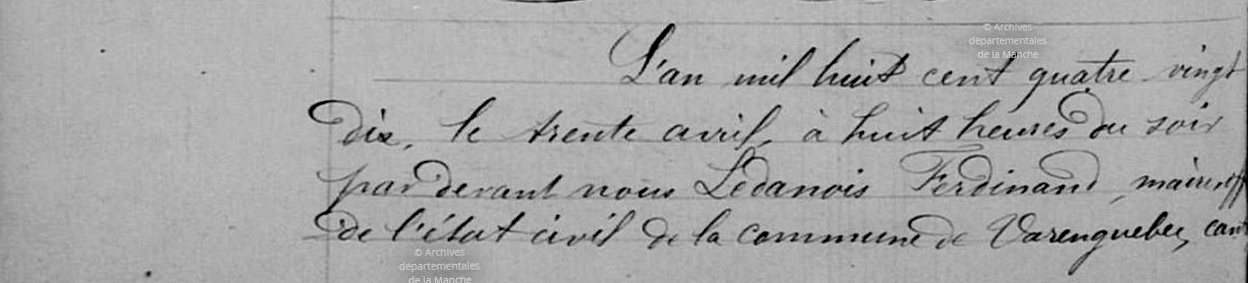 © Archives
départementales
de la Manche
L'an mil huit cent quatre vingt
dix, le trente avril, à huit heures du soir
par devant nous Ledanois Ferdinand, maire, off
de l'état civil de la commune de Varenguebec, cant
© Archives
départementales
de la Manche